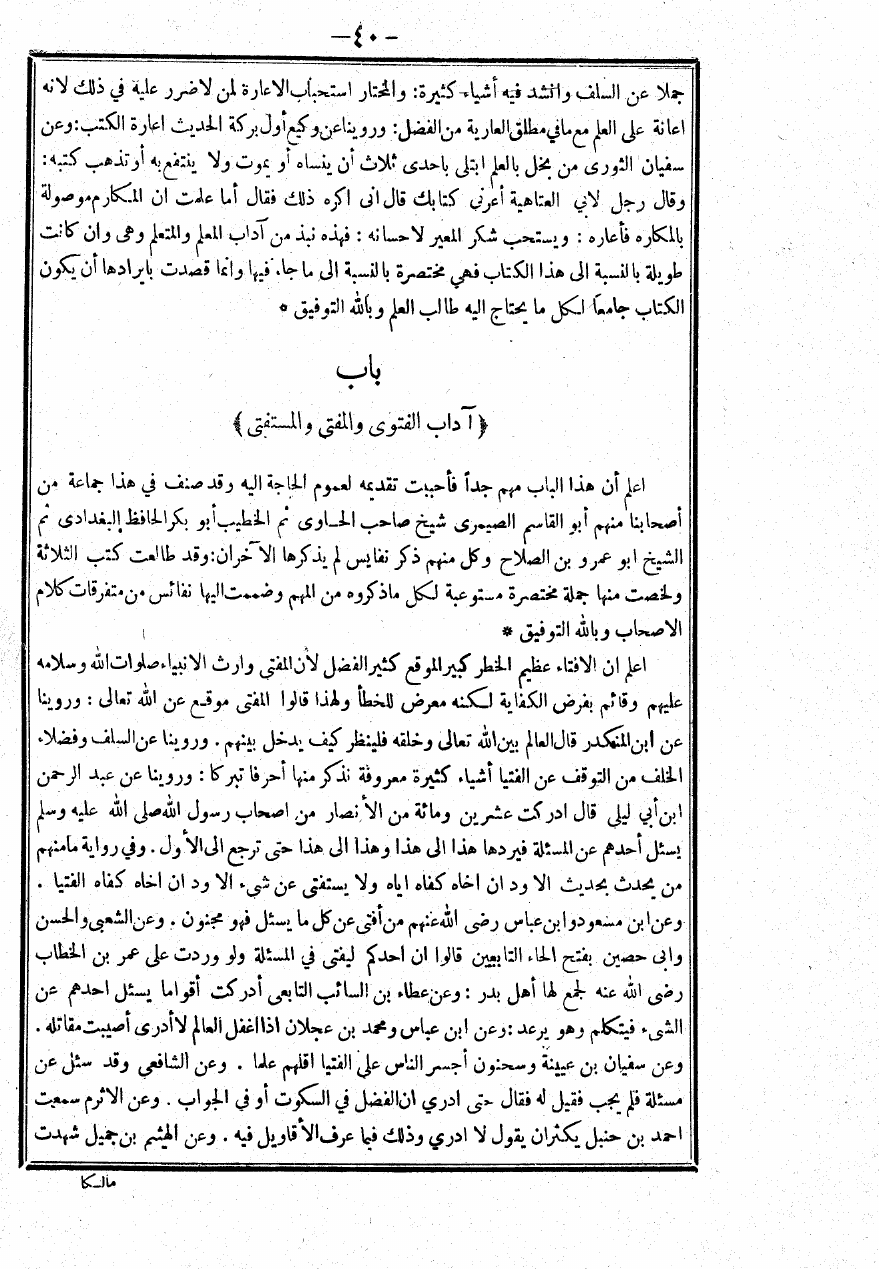 -٤٠-
جملا عن السلف وانشد فيه أشياء كثيرة: والمختار استحباب الاعارة لمن لا ضرر علية في ذلك لانه
اعانة على العلم مع مافي مطلق العارية من الفضل: وروينا عن وكيع أول بركة الحديث اعارة الكتب: وعن
سفيان الثورى من بخل بالعلم ابتلى باحدى ثلاث أن ينساه أو يموت ولا ينتفع به أو تذهب كتبه:
وقال رجل لابي العتاهية أعرني كتابك قال انى اكره ذلك فقال أما علمت ان المكارم موصولة
بالمكاره فأعاره: ويستحب شكر المعير لاحسانه: فهذه نبذ من آداب المعلم والمتعلم وهى وان كانت
طويلة بالنسبة الى هذا الكتاب فهي مختصرة بالنسبة الى ما جاء فيها وانما قصدت بايرادها أن يكون
الكتاب جامعاً لكل ما يحتاج اليه طالب العلم وبالله التوفيق *
باب
﴿آداب الفتوى والمفتي والمستفتى﴾
اعلم أن هذا الباب مهم جداً فأحببت تقديمه لعموم الحاجة اليه وقد صنف في هذا جماعة من
أصحابنا منهم أبو القاسم الصيمرى شيخ صاحب الحاوى ثم الخطيب أبو بكر الحافظ البغدادى ثم
الشيخ ابو عمرو بن الصلاح وكل منهم ذكر نفايس لم يذكرها الآخران: وقد طالعت كتب الثلاثة
ولخصت منها جملة مختصرة مستوعبة لكل ماذكروه من المهم وضممت اليها نفائس من متفرقات كلام
الاصحاب وبالله التوفيق *
اعلم ان الافتاء عظيم الخطر كبير الموقع كثير الفضل لأن المفتى وارث الانبياء صلوات الله وسلامه
عليهم وقائم بفرض الكفاية لكنه معرض للخطأ ولهذا قالوا المفتى موقع عن الله تعالى: وروينا
عن ابن المنكدر قال العالم بين الله تعالى وخلقه فلينظر كيف يدخل بينهم. وروينا عن السلف وفضلاء
الخلف من التوقف عن الفتيا أشياء كثيرة معروفة نذكر منها أحرفا تبركا: وروينا عن عبد الرحمن
ابن أبي ليلى قال ادركت عشرين ومائة من الأنصار من اصحاب رسول الله صلى الله عليه وسلم
يسئل أحدهم عن المسئلة فيردها هذا الى هذا وهذا الى هذا حتى ترجع الى الأول. وفي رواية مامنهم
من يحدث بحديث الا ود ان اخاه كفاه اياه ولا يستفتى عن شيء الا ود ان اخاه كفاه الفتيا.
وعن ابن مسعود وابن عباس رضى الله عنهم من أفتى عن كل ما يسئل فهو مجنون. وعن الشعبي والحسن
وابى حصين بفتح الحاء التابعيين قالوا ان احدكم ليفتى في المسئلة ولو وردت على عمر بن الخطاب
رضى الله عنه لجمع لها أهل بدر: وعن عطاء بن السائب التابعى أدركت أقواما يسئل احدهم عن
الشىء فيتكلم وهو يرعد: وعن ابن عباس ومحمد بن عجلان اذا اغفل العالم لا أدرى أصيبت مقاتله.
وعن سفيان بن عيينة وسحنون أجسر الناس على الفتيا اقلهم علما. وعن الشافعي وقد سئل عن
مسئلة فلم يجب فقيل له فقال حتى ادري ان الفضل في السكوت أو في الجواب. وعن الاثرم سمعت
احمد بن حنبل يكثر ان يقول لا ادري وذلك فيما عرف الأقاويل فيه. وعن الهيثم بن جميل شهدت
مالكا